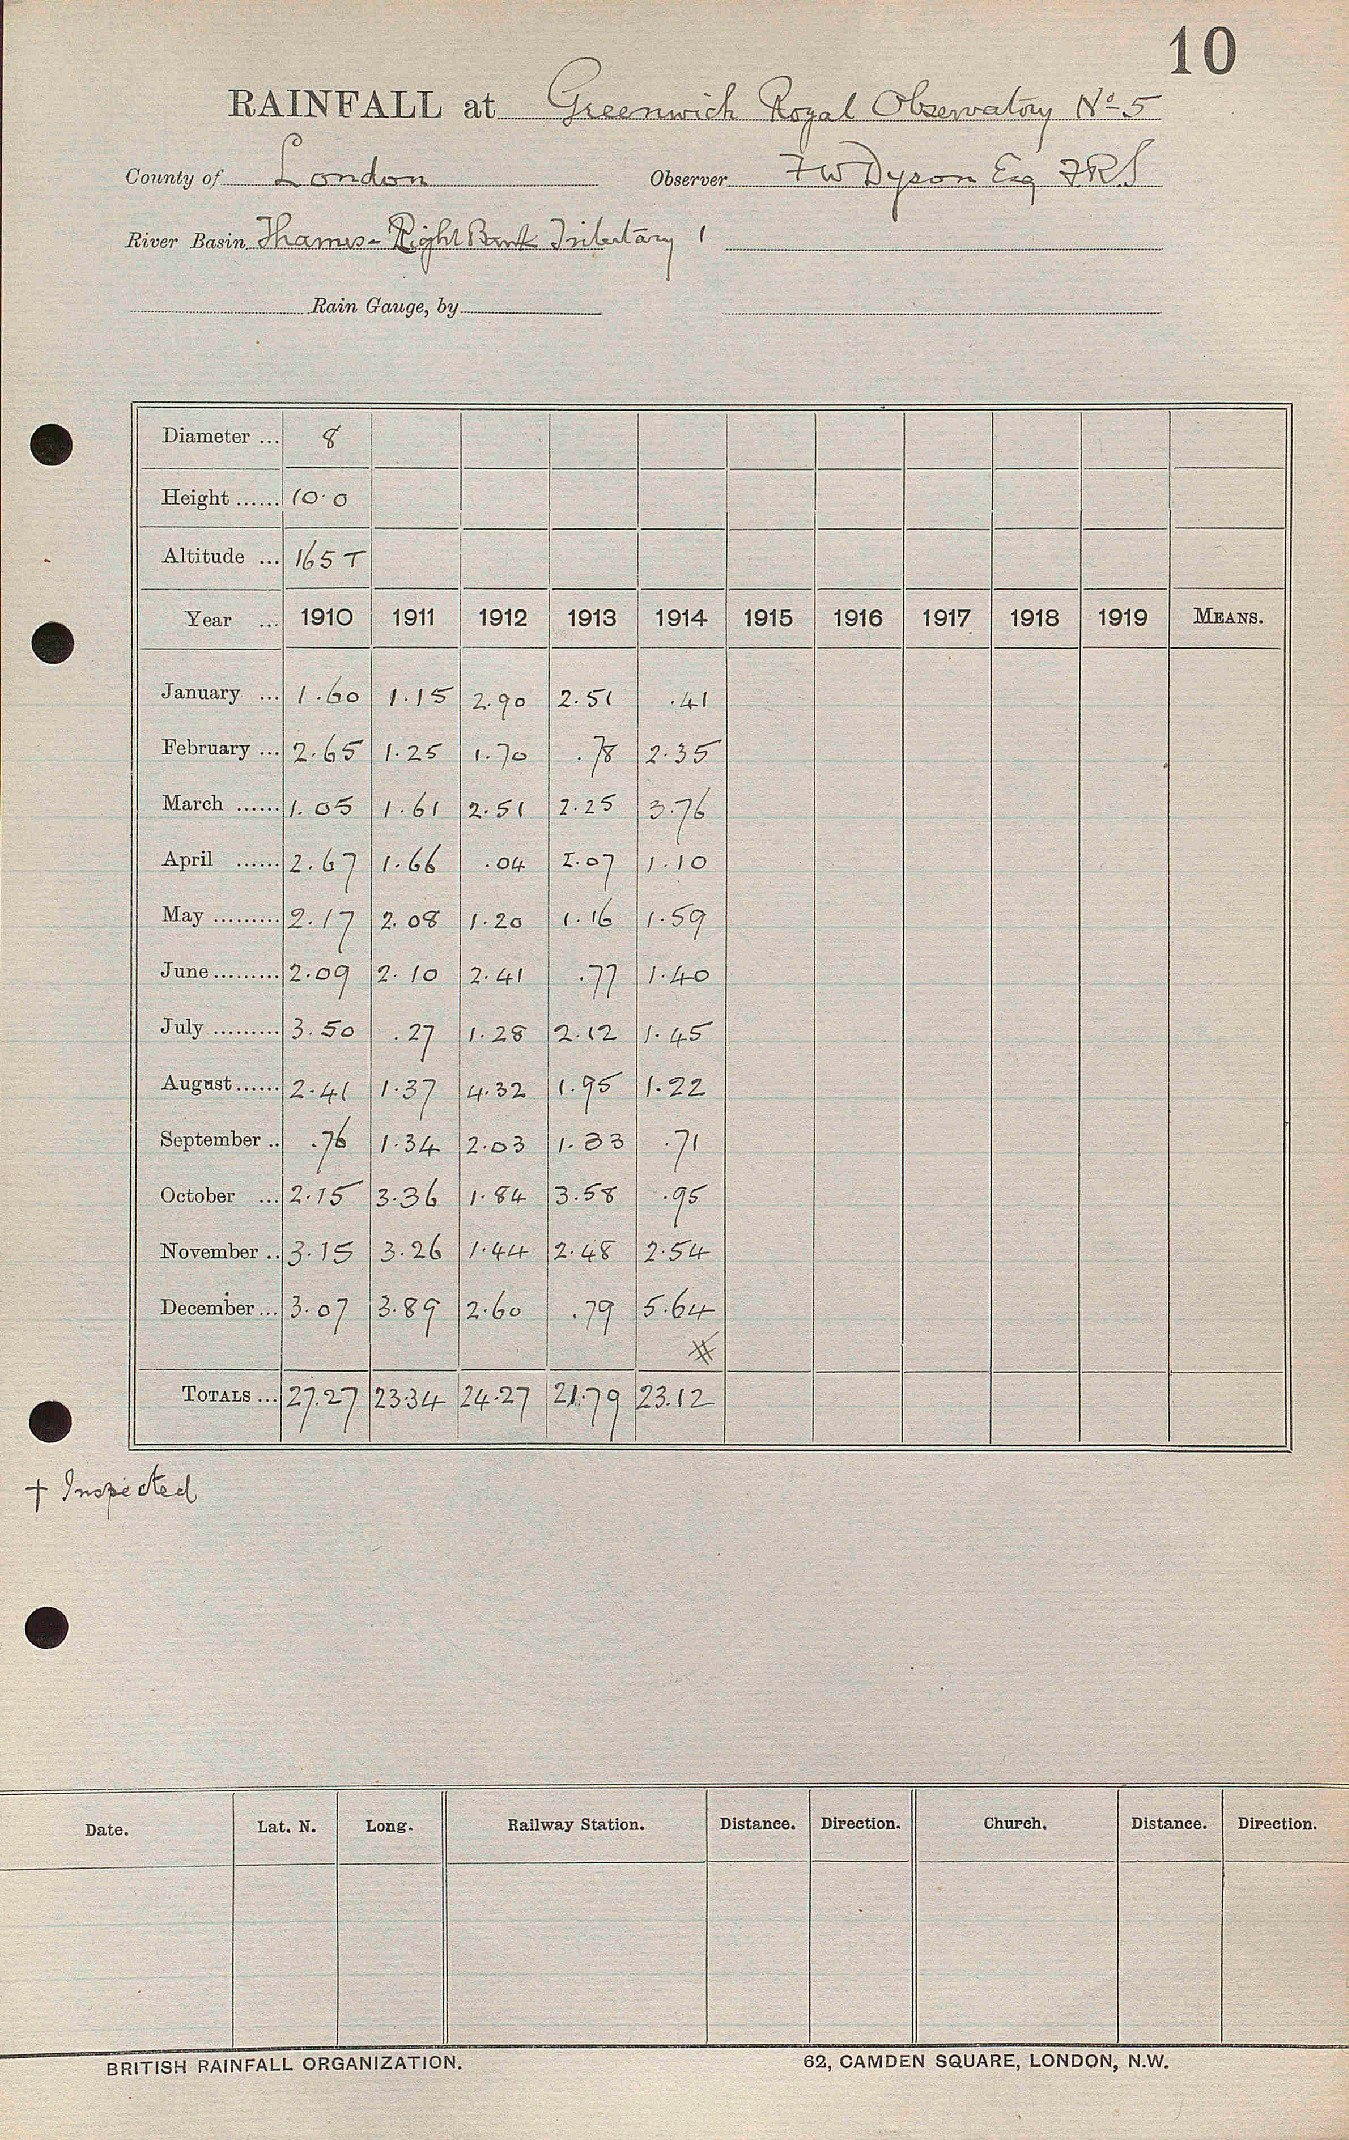 10
RAINFALL at Greenwich Royal Observatory No 5
County of London Observer F W Dyson Esq FRS
River Basin Thames - Right Bank Tributary 1
Rain Gauge, by
Diameter ... 8
Height ...... 10.0
Altitude ... 165 T
Year ... 1910 1911 1912 1913 1914 1915 1916 1917 1918 1919 MEANS.
January ... 1.60 1.15 2.90 2.51 .41
February ... 2.65 1.25 1.70 .78 2.35
March ...... 1.05 1.61 2.51 2.25 3.76
April ...... 2.67 1.66 .04 2.07 1.10
May ......... 2.17 2.08 1.20 1.16 1.59
June ......... 2.09 2.10 2.41 .77 1.40
July ......... 3.50 .27 1.28 2.12 1.45
August ...... 2.41 1.37 4.32 1.95 1.22
September .. .76 1.34 2.03 1.33 .71
October ... 2.15 3.36 1.84 3.58 .95
November .. 3.15 3.26 1.44 2.48 2.54
December ... 3.07 3.89 2.60 .79 5.64
#
TOTALS ... 27.27 23.34 24.27 21.79 23.12
† Inspected
Date. Lat. N. Long. Railway Station. Distance. Direction. Church. Distance. Direction.
BRITISH RAINFALL ORGANIZATION. 62, CAMDEN SQUARE, LONDON, N.W.